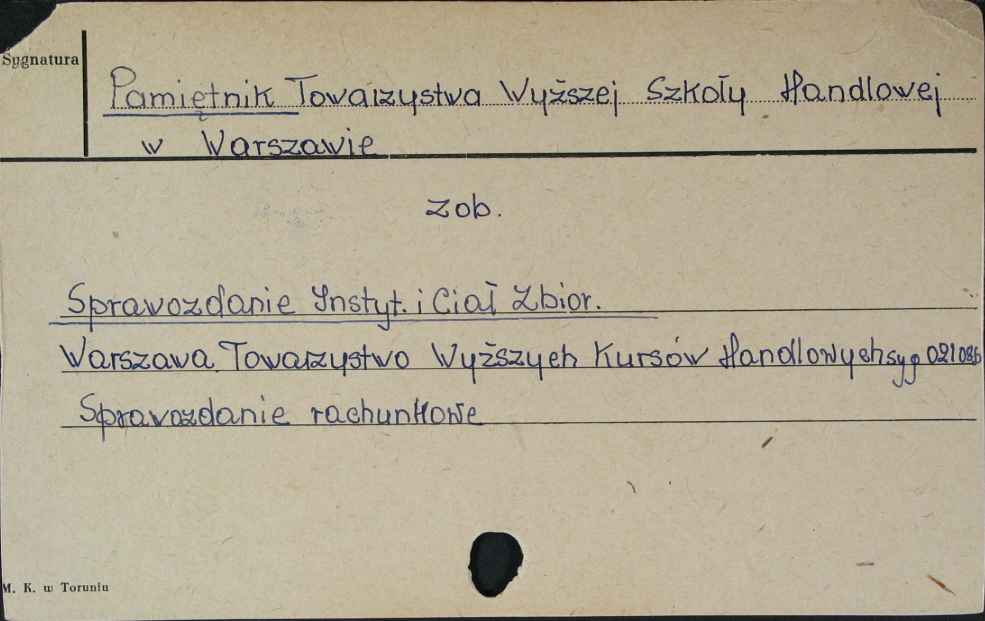 Sygnatura
Pamiętnik Towarzystwa Wyższej Szkoły Handlowej
w Warszawie
zob.
Sprawozdanie Instyt. i Ciał Zbior.
Warszawa. Towarzystwo Wyższych Kursów Handlowych syg 021086
Sprawozdanie rachunkowe
M. K. w Toruniu